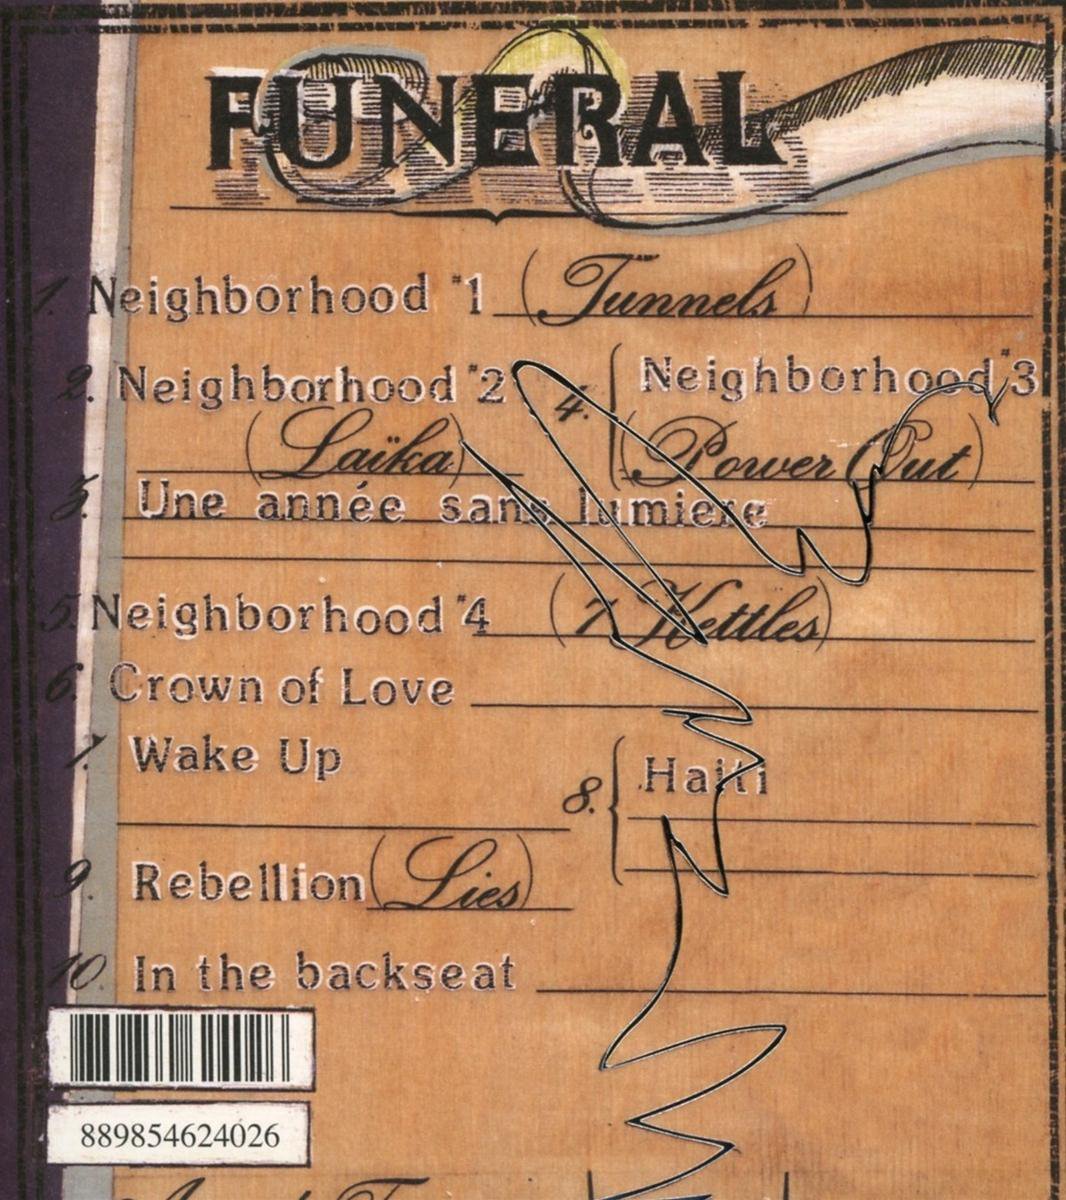 FUNERAL
1. Neighborhood #1 (Tunnels)
2. Neighborhood #2
(Laïka)
3. Une année sans lumiere
4. Neighborhood #3
(Power Out)
5. Neighborhood #4 (7 Kettles)
6. Crown of Love
7. Wake Up
8. Haiti
9. Rebellion (Lies)
10. In the backseat
889854624026